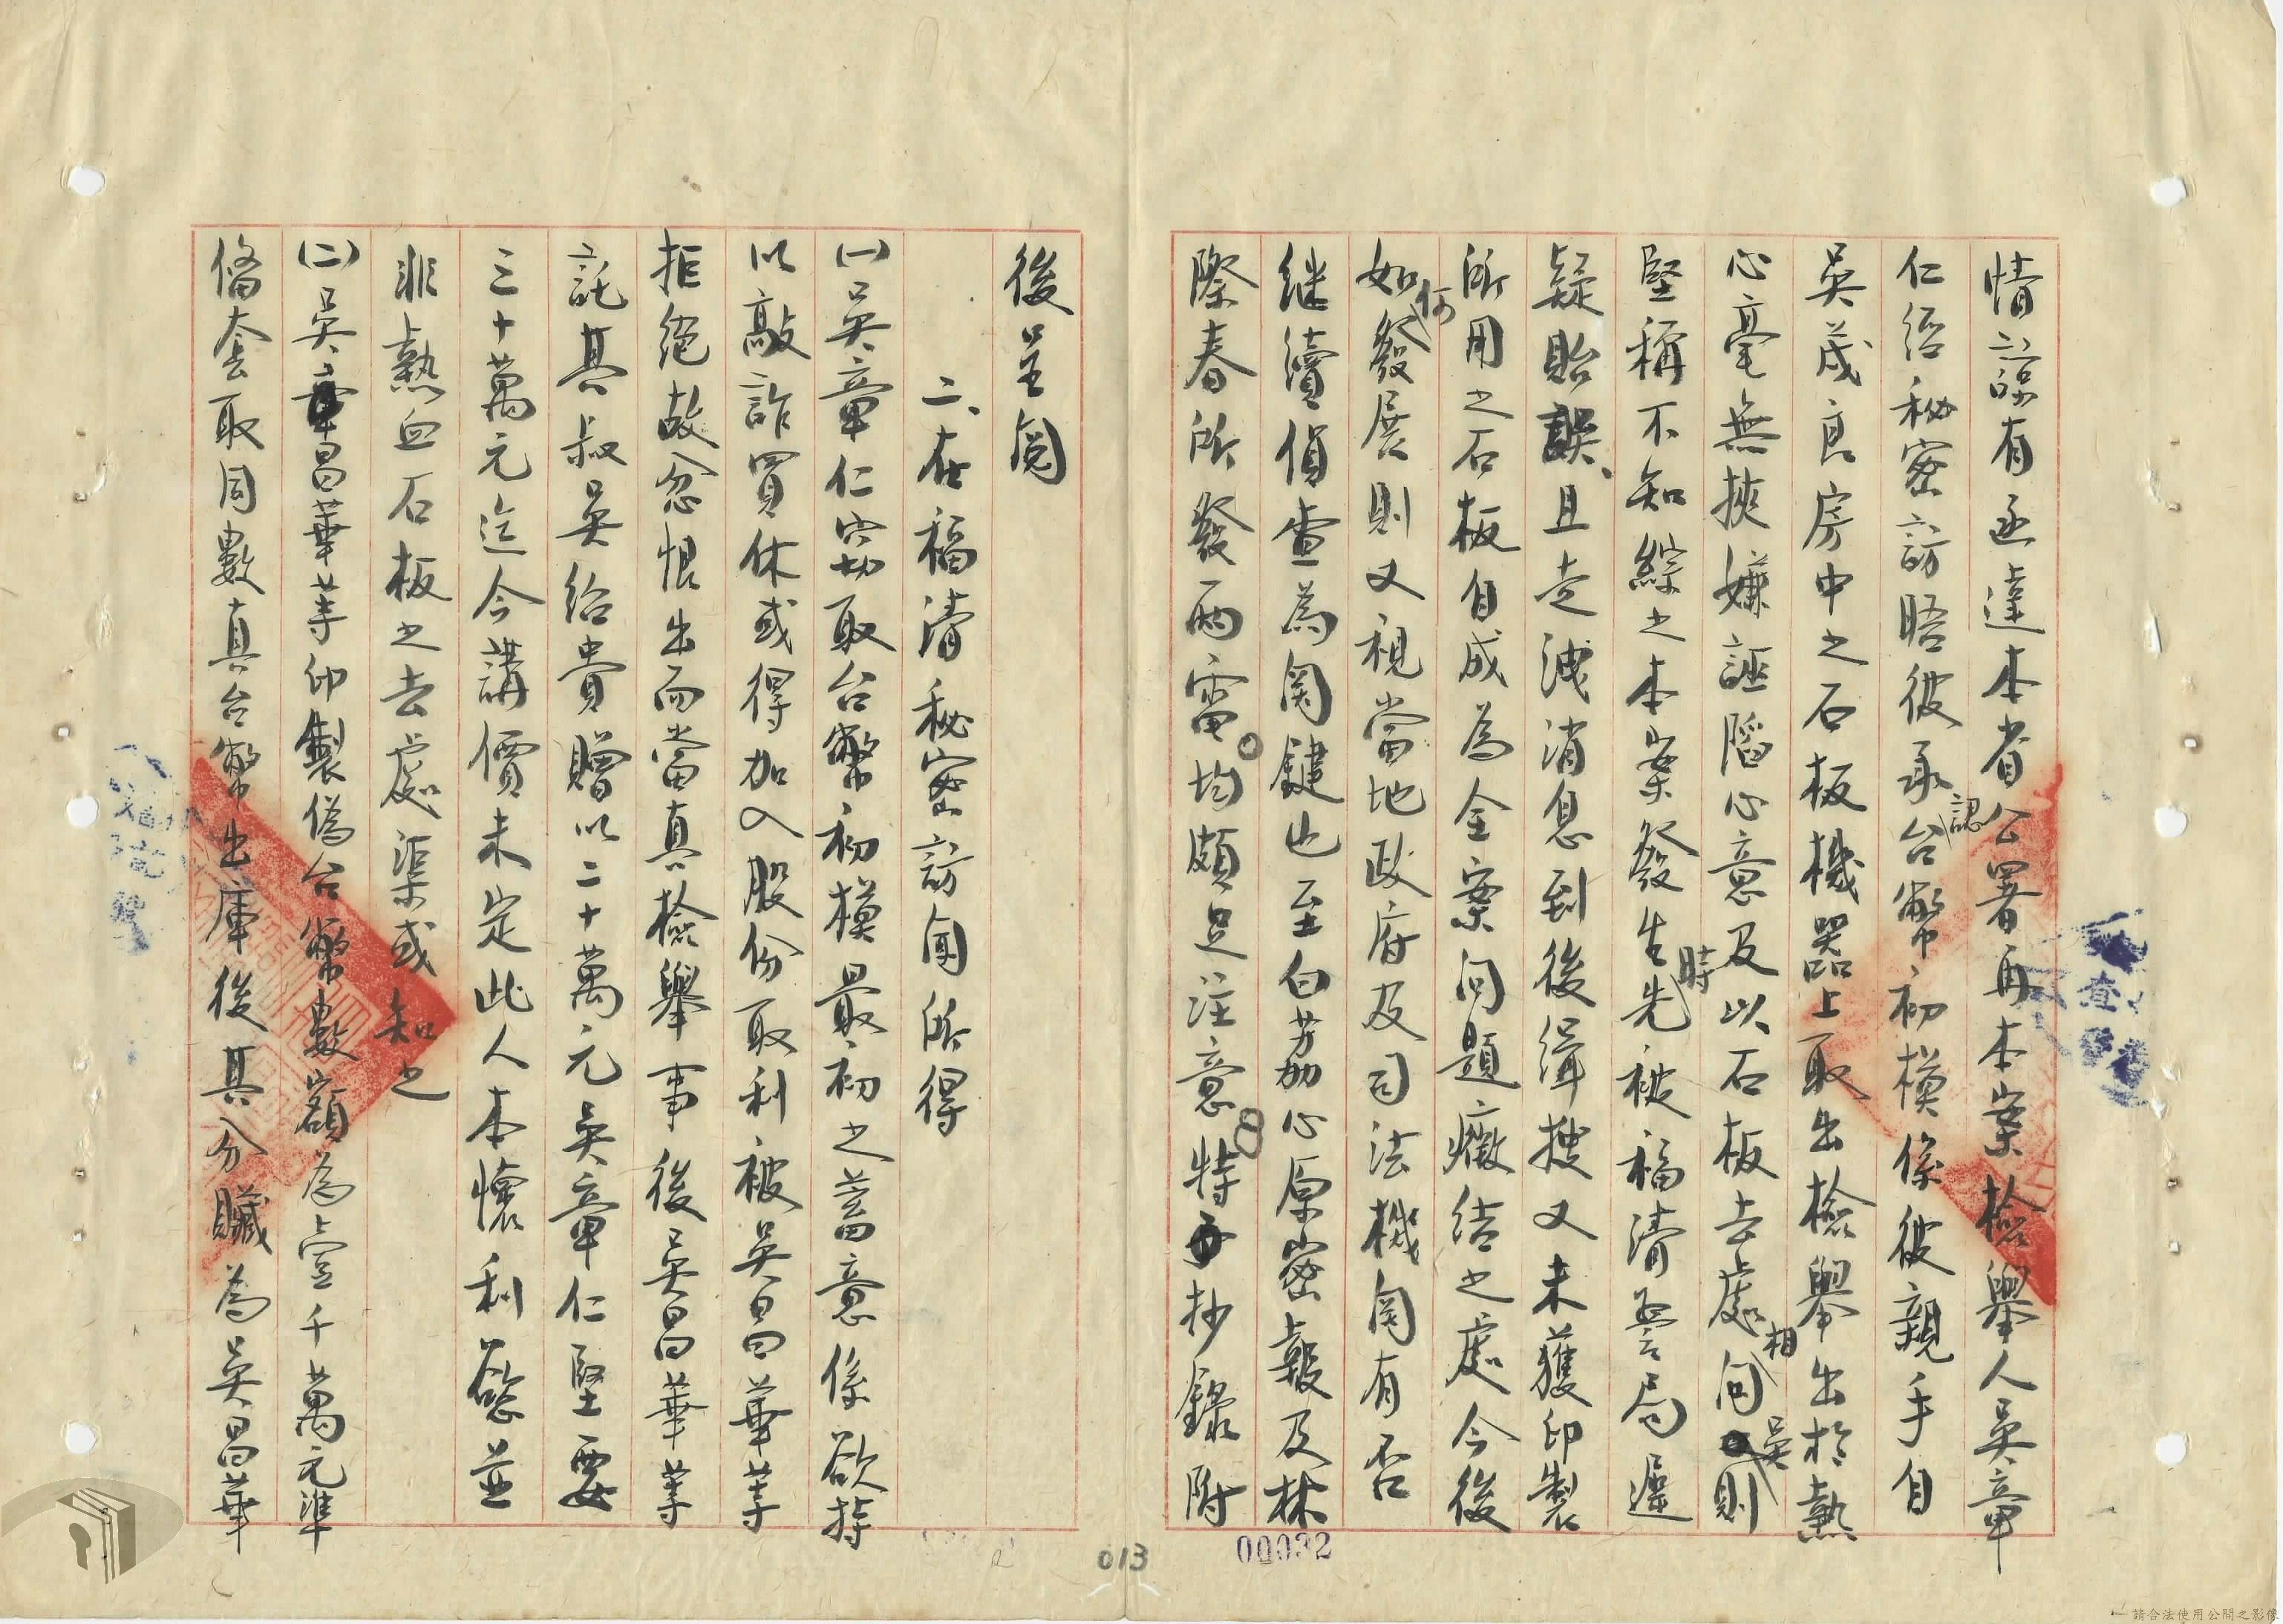 情諒有函達本省公署再本案檢舉人吳章
仁經秘密訪晤彼承認台幣初模係彼親手自
吳茂良房中之石板機器上取出檢舉出於熱
心毫無挾嫌誣陷心意及以石板去處相問吳則
堅稱不知綜之本案發生時先被福清警局遲
疑貽誤、且走洩消息到後緝搜又未獲印製
所用之石板自成為全案問題癥結之處今後
如何發展則又視當地政府及司法機關有否
继續偵查為關鍵也至白荔心原密報及林
際春所發兩電均頗足注意特抄錄附
後呈閱
二、在福清秘密訪閱所得
(一)吳章仁竊取台幣初模最初之蓄意係欲持
以敲詐買休或得加入股份取利被吳昌華等
拒絕故忿恨出而當真檢舉事後吳昌華等
託其叔吳給貴贈以二十萬元吳章仁堅要
三十萬元迄今講價未定此人本懷利慾並
非熱血石板之去處渠或知之
(二)吳章昌華等印製偽台幣數額為壹千萬元準
備套取同數真台幣出庫後其分贓為吳昌華
00032
013
請合法使用公開之影像